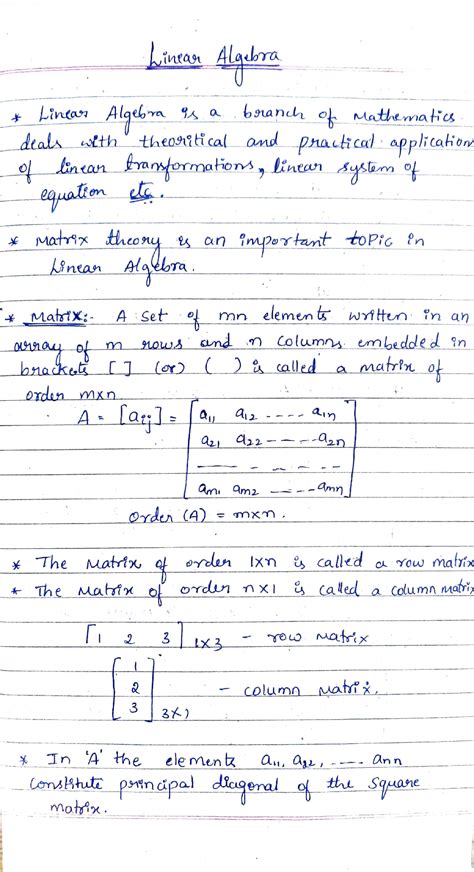 Linear Algebra
* Linear Algebra is a branch of Mathematics
deals with theoritical and practical application
of linear transformations, linear system of
equation etc.
* Matrix theory is an important topic in
Linear Algebra.
* Matrix:- A set of mn elements written in an
array of m rows and n columns embedded in
brackets [ ] (or) ( ) is called a matrix of
order mxn.
A = [aij] = [a11 a12 ---- a1n
a21 a22 ---- a2n
-- -- - - --
am1 am2 ---- amn]
Order (A) = mxn.
* The Matrix of order 1xn is called a row matrix
* The Matrix of order nx1 is called a column matrix
[1 2 3]1x3 - row Matrix
[1
2
3]3x1 - column Matrix.
* In 'A' the elements a11, a22, ---- ann
constitute principal diagonal of the square
matrix.